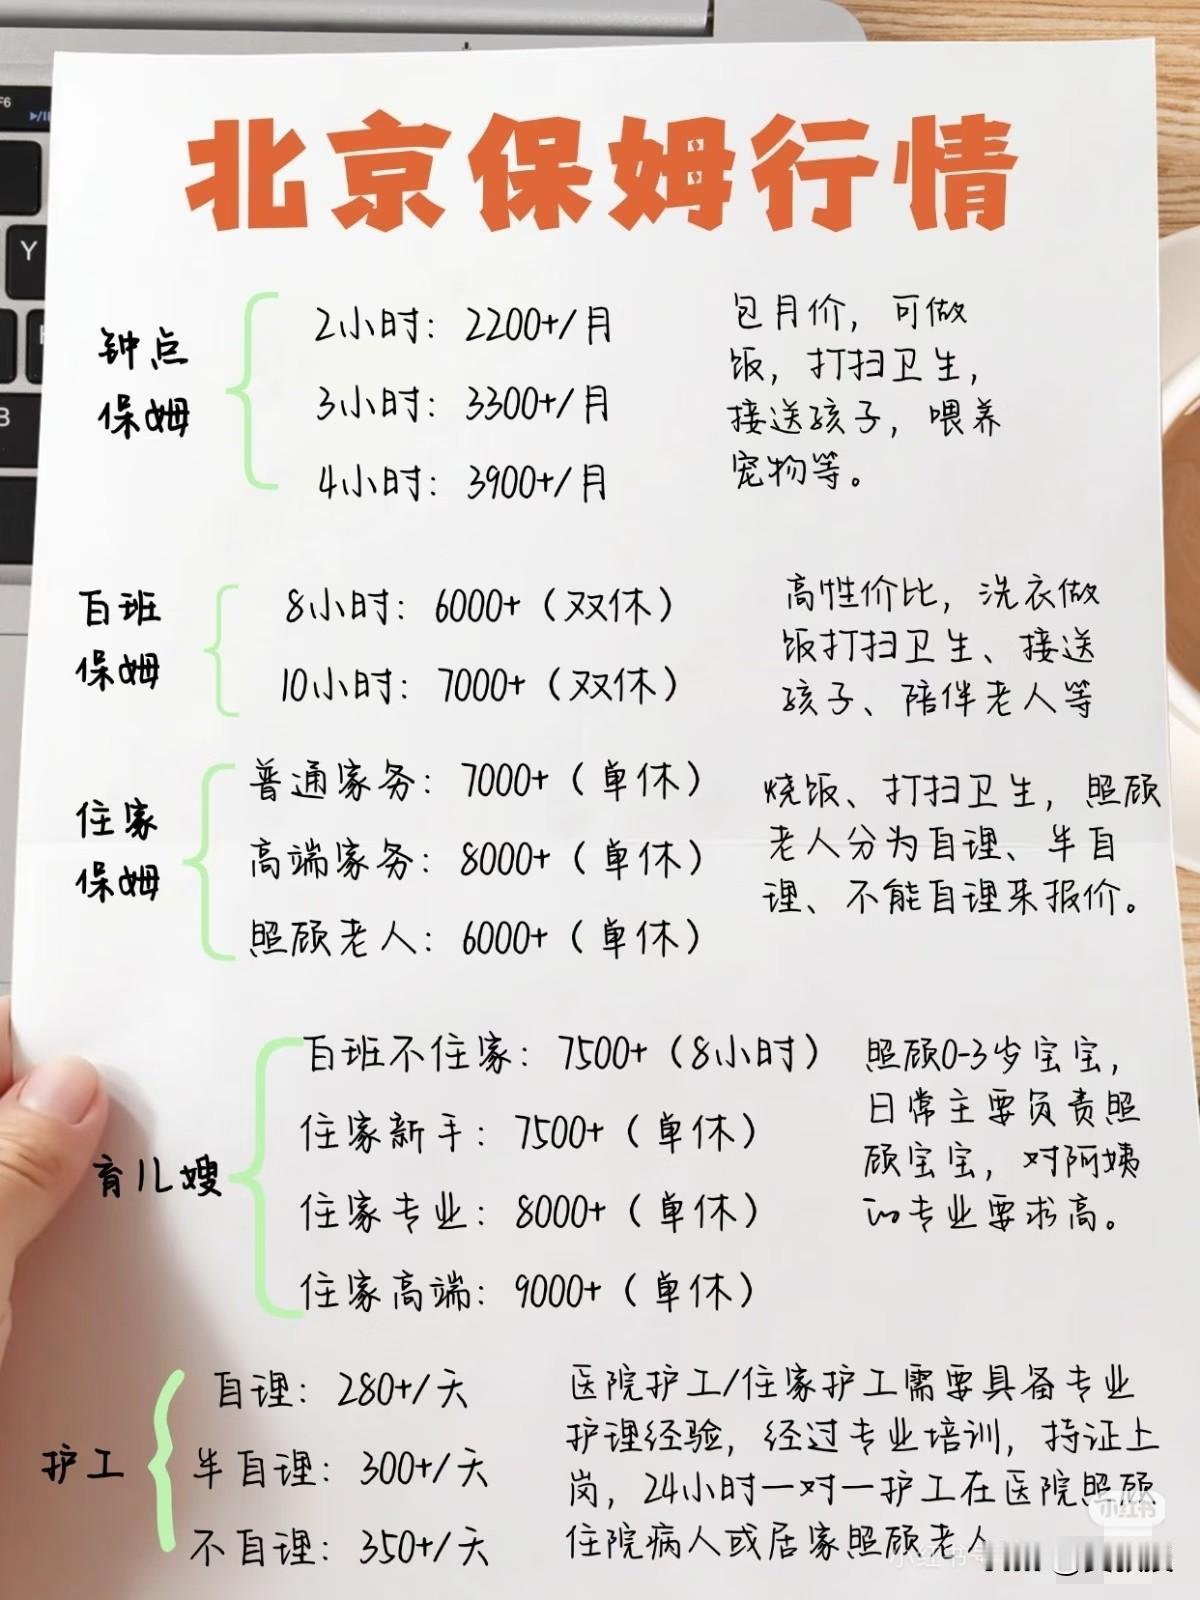 北京保姆行情
钟点
保姆
2小时：2200+/月
3小时：3300+/月
4小时：3900+/月
包月价，可做
饭，打扫卫生，
接送孩子，喂养
宠物等。
白班
保姆
8小时：6000+（双休）
10小时：7000+（双休）
高性价比，洗衣做
饭打扫卫生、接送
孩子、陪伴老人等
住家
保姆
普通家务：7000+（单休）
高端家务：8000+（单休）
照顾老人：6000+（单休）
烧饭、打扫卫生，照顾
老人分为自理、半自
理、不能自理来报价。
育儿嫂
白班不住家：7500+（8小时）
住家新手：7500+（单休）
住家专业：8000+（单休）
住家高端：9000+（单休）
照顾0-3岁宝宝，
日常主要负责照
顾宝宝，对阿姨
的专业要求高。
护工
自理：280+/天
半自理：300+/天
不自理：350+/天
医院护工/住家护工需要具备专业
护理经验，经过专业培训，持证上
岗，24小时一对一护工在医院照顾
住院病人或居家照顾老人
小红书
小红书号
F6
Y
H
B